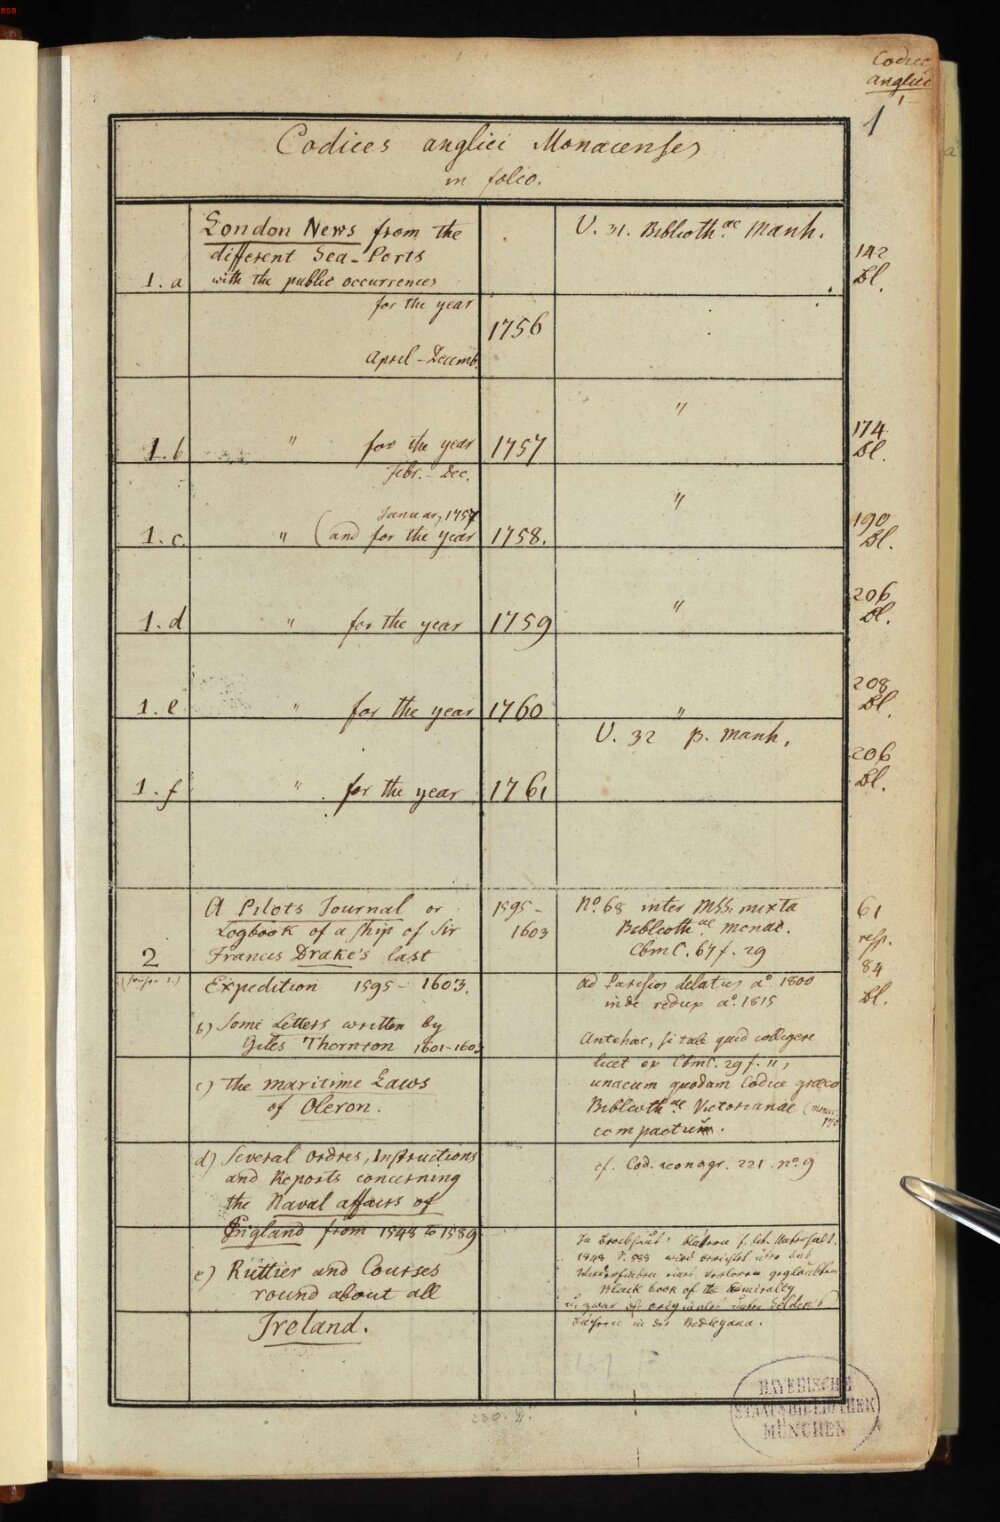 Codices
anglici
1
Codices anglici Monacenses
in folio.
London News from the
different Sea-Ports
1. a with the public occurrences
U. 31. Biblioth.ae Manh.
142
Bl.
for the year
1756
April - Decemb.
1. b " for the year 1757 "
174
Bl.
Febr. - Dec.
January, 1757
1. c. " (and for the year 1758. "
190
Bl.
1. d " for the year 1759 "
206
Bl.
1. e " for the year 1760 "
208
Bl.
U. 32 p. Manh.
1. f " for the year 1761
206
Bl.
A Pilots Journal or
Logbook of a ship of Sir
2 Francis Drake's last
Expedition 1595 - 1603.
1595 -
1603
No. 68 inter Mss. mixta
Biblioth.ae monac.
Cbm C. 67 f. 29
61
resp.
84
Bl.
ad Parisios delatus ao. 1800
inde redux ao. 1815
b) Some Letters written by
Giles Thornton 1601-1603
Antehac, si tale quid colligere
licet ex Cbm C. 29 f. 11,
unacum quodam Codice graeco
Biblioth.ae Victorianae
compactum.
c) the maritime Laws
of Oleron.
d) Several ordres, Instructions
and Reports concerning
the Naval affairs of
England from 1548 to 1589
cf. Cod. iconogr. 221. no. 9
e) Ruttier and Courses
round about all
Ireland.
1848
Black book of the Admiralty
BAYERISCHE
STAATSBIBLIOTHEK
MÜNCHEN